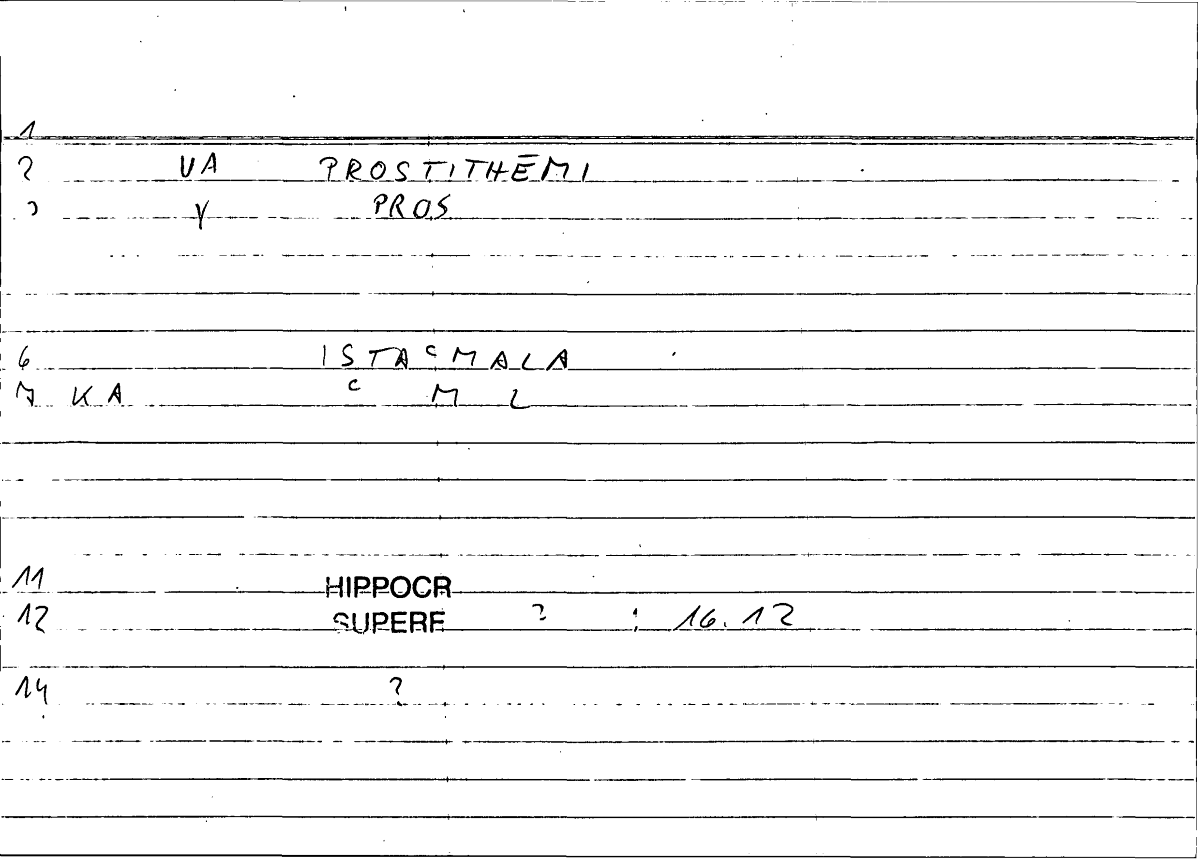 1
2 VA PROSTITHĒMI
3 Y PROS
6 ISTAᶜMALA
7 KA ᶜ M L
11 HIPPOCR
12 SUPERF ? : 16.12
14 ?